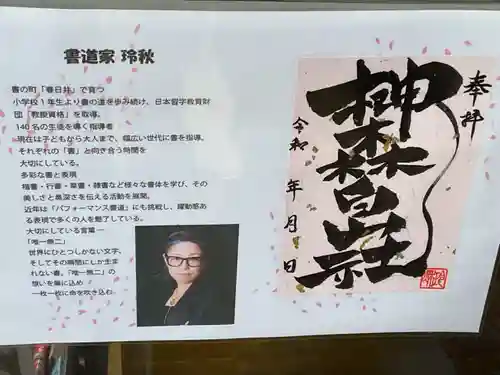 書道家 玲秋
書の町「春日井」で育つ
小学校1年生より書の道を歩み続け、日本習字教育財
団「教授資格」を取得。
140名の生徒を導く指導者
現在は子どもから大人まで、幅広い世代に書を指導。
それぞれの「書」と向き合う時間を
大切にしている。
多彩な書と表現
楷書・行書・草書・隷書など様々な書体を学び、その
美しさと奥深さを伝える活動を展開。
近年は「パフォーマンス書道」にも挑戦し、躍動感あ
る表現で多くの人を魅了している。
大切にしている言葉―
「唯一無二」
世界にひとつしかない文字、
そしてその瞬間にしか生ま
れない書。「唯一無二」の
想いを胸に込め
一枚一枚に命を吹き込む。
奉拝
白山社
令和 年 月 日